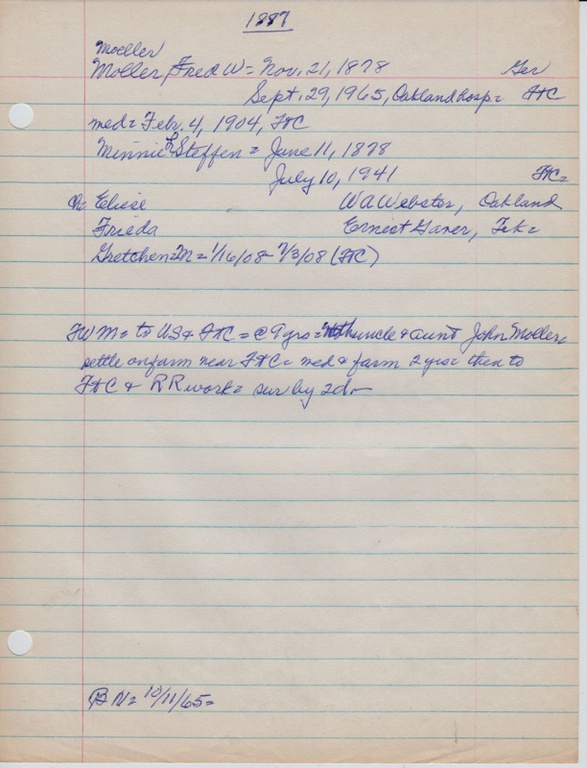 1887
Moeller
Moller, Fred W = Nov. 21, 1878 Ger
Sept. 29, 1965, Oakland hosp = FtC
med = Febr. 4, 1904, FtC
Minnie F Steffen = June 11, 1878
July 10, 1941 FtC =
Ch = Eliese W A Webster, Oakland
Frieda Ernest Garer, Tek =
Gretchen M = 1/16/08 - 7/3/08 (FtC)
FWM = to US & FtC = @ 9 yrs = with uncle & aunt John Moller =
settle on farm near FtC = med & farm 2 yrs = then to
FtC & RR work = sur by 2d -
BN = 10/11/65 =